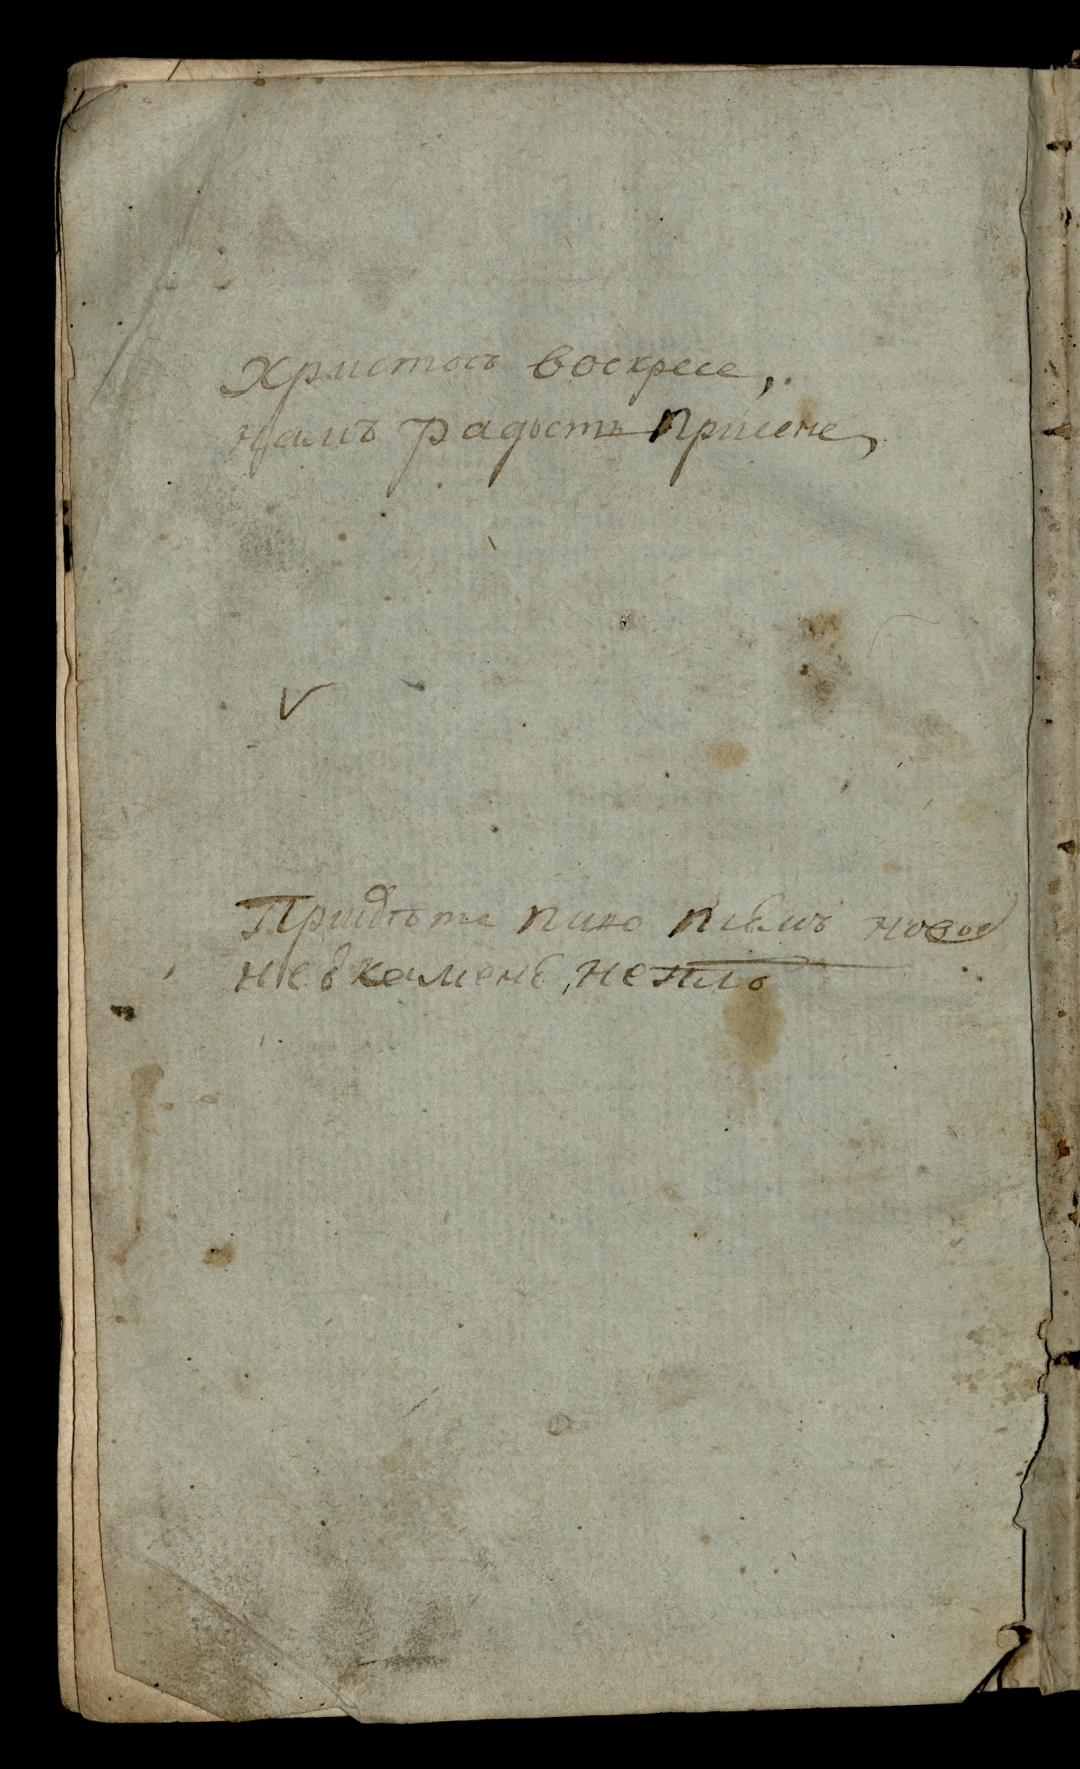 Христосъ воскресе,
намъ радость принене,
Приидѣте пиво пиемъ новое
не ѿ камене, непло